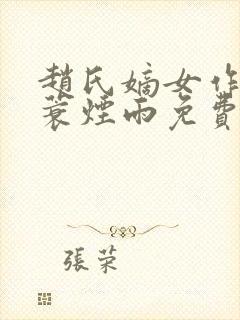 趙氏嫡女作
蓑煙雨免費
張荣